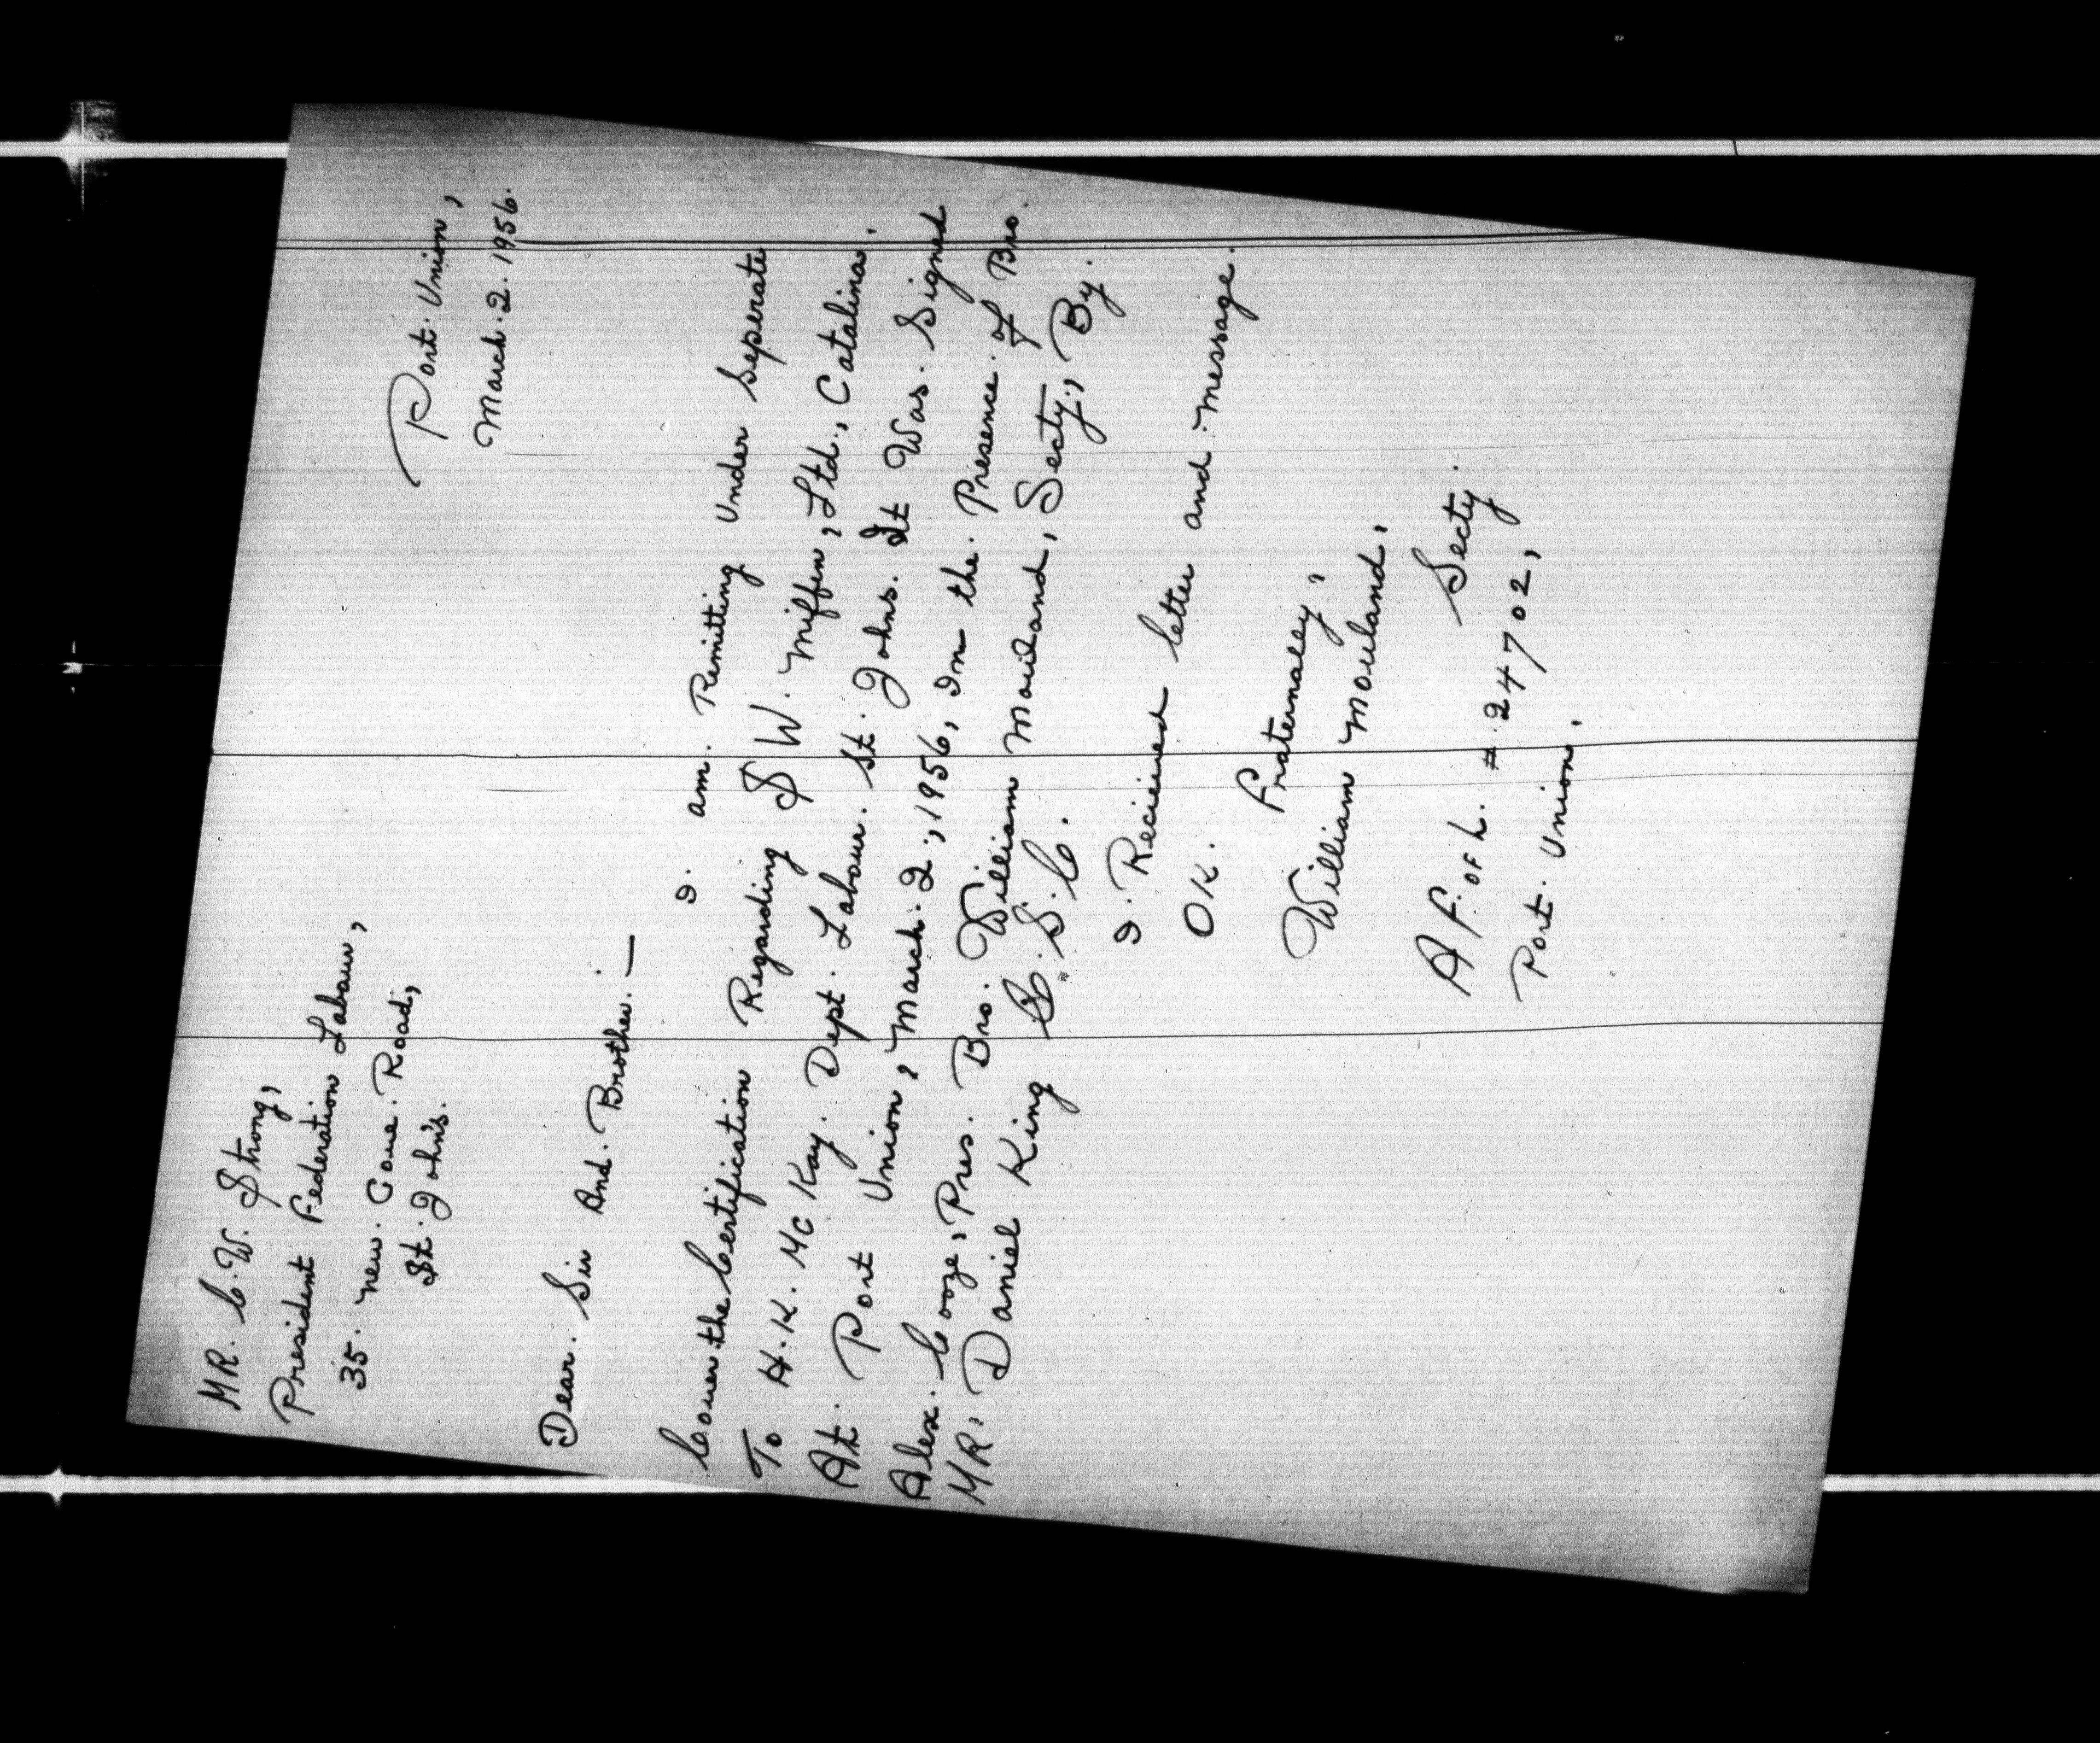 MR. C. W. Strong,
President Federation Labour,
35. New. Cove. Road,
St. John's.
Port. Union,
March. 2. 1956.
Dear. Sir And. Brother. —
I. am. Remitting Under Seperate
Cover the Certification Regarding S W. Mifflen, Ltd., Catalina.
To H. K. Mc Kay. Dept. Labour. St. Johns. It Was. Signed
At. Port Union, March. 2., 1956, In the. Presence. of Bro.
Alex. Cooze, Pres. Bro. William Mouland, Secty., By.
MR. Daniel King C. S. C.
I. Recieved letter and. message.
OK.
Fraternaley,
William Mouland,
Secty.
A F. OF L. #. 24702,
Port. Union.